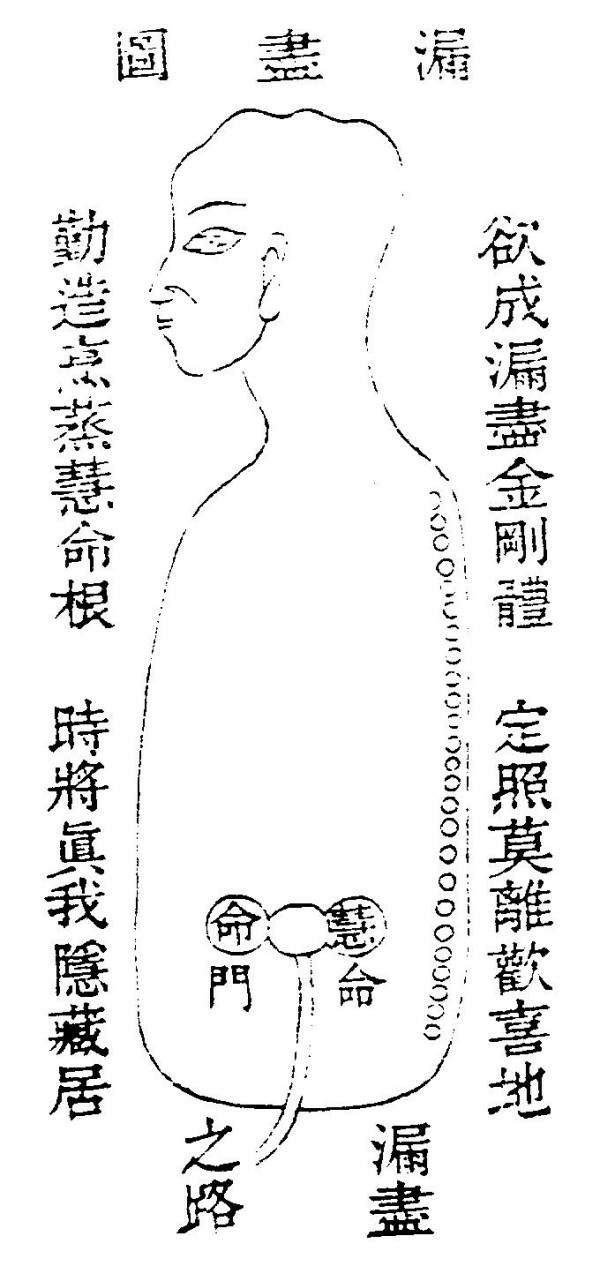 漏盡圖
欲成漏盡金剛體
勤造烹蒸慧命根
定照莫離歡喜地
時將眞我隱藏居
慧命
命門
漏盡
之路